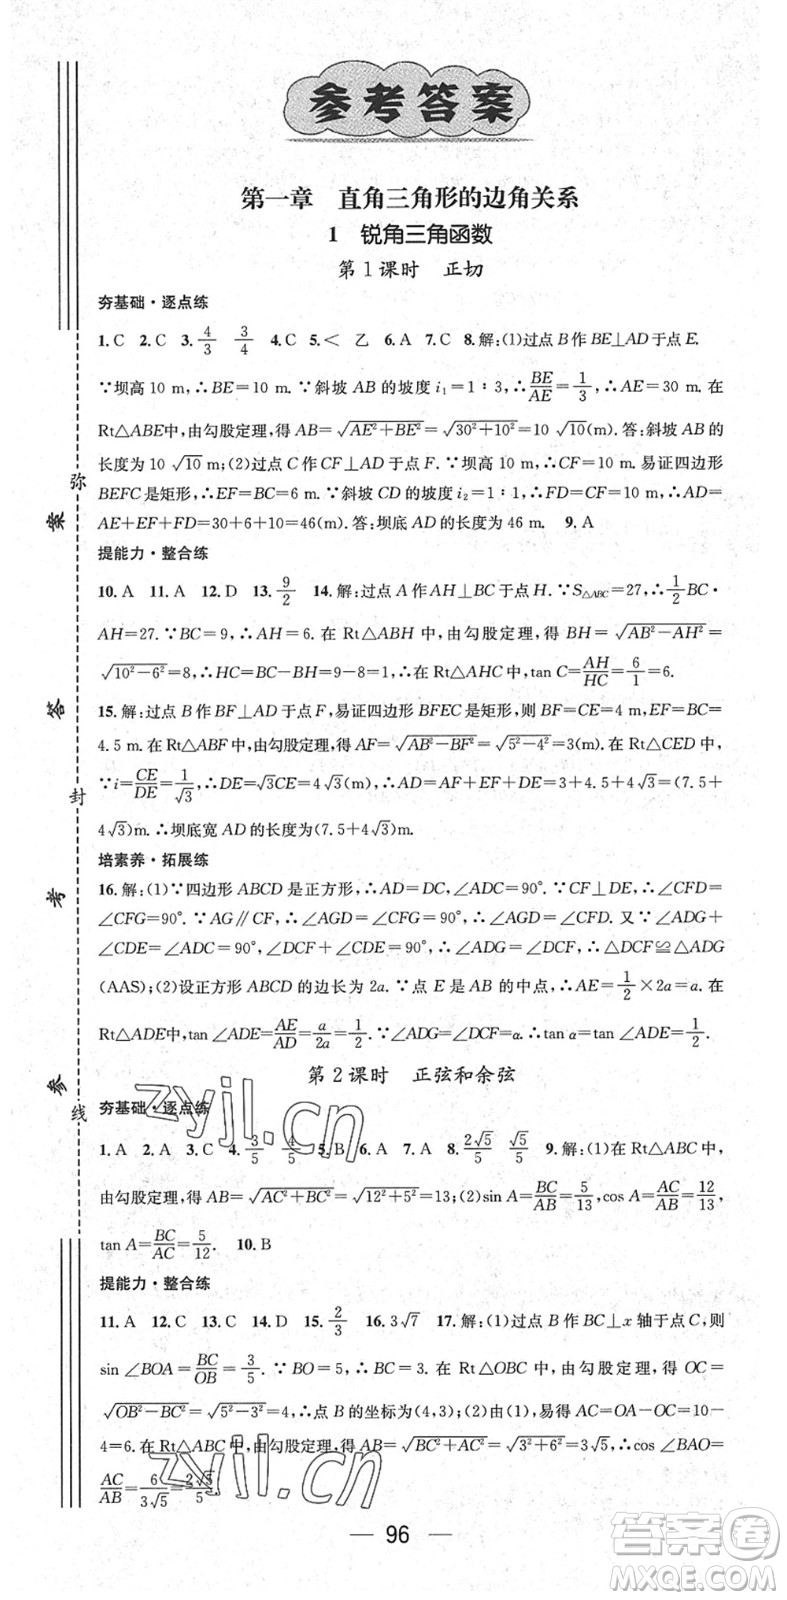 参考答案
第一章 直角三角形的边角关系
1 锐角三角函数
第1课时 正切
夯基础·逐点练
1.C 2.C 3.4/3 3/4 4.C 5.< 乙 6.A 7.C 8.解:(1)过点B作BE⊥AD于点E.
∵坝高10 m,∴BE=10 m.∵斜坡AB的坡度i₁=1∶3,∴BE/AE=1/3,∴AE=30 m.在
Rt△ABE中,由勾股定理,得AB=√(AE²+BE²)=√(30²+10²)=10√10(m).答:斜坡AB的
长度为10√10 m;(2)过点C作CF⊥AD于点F.∵坝高10 m,∴CF=10 m.易证四边形
BEFC是矩形,∴EF=BC=6 m.∵斜坡CD的坡度i₂=1∶1,∴FD=CF=10 m,∴AD=
AE+EF+FD=30+6+10=46(m).答:坝底AD的长度为46 m. 9.A
提能力·整合练
10.A 11.A 12.D 13.9/2 14.解:过点A作AH⊥BC于点H.∵S△ABC=27,∴1/2BC·
AH=27.∵BC=9,∴AH=6.在Rt△ABH中,由勾股定理,得BH=√(AB²-AH²)=
√(10²-6²)=8,∴HC=BC-BH=9-8=1,∴在Rt△AHC中,tan C=AH/HC=6/1=6.
15.解:过点B作BF⊥AD于点F,易证四边形BFEC是矩形,则BF=CE=4 m,EF=BC=
4.5 m.在Rt△ABF中,由勾股定理,得AF=√(AB²-BF²)=√(5²-4²)=3(m).在Rt△CED中,
∵i=CE/DE=1/√3,∴DE=√3CE=4√3(m),∴AD=AF+EF+DE=3+4.5+4√3=(7.5+
4√3)m.∴坝底宽AD的长度为(7.5+4√3)m.
培素养·拓展练
16.解:(1)∵四边形ABCD是正方形,∴AD=DC,∠ADC=90°.∵CF⊥DE,∴∠CFD=
∠CFG=90°.∵AG∥CF,∴∠AGD=∠CFG=90°,∴∠AGD=∠CFD.又∵∠ADG+
∠CDE=∠ADC=90°,∠DCF+∠CDE=90°,∴∠ADG=∠DCF,∴△DCF≌△ADG
(AAS);(2)设正方形ABCD的边长为2a.∵点E是AB的中点,∴AE=1/2×2a=a.在
Rt△ADE中,tan∠ADE=AE/AD=a/2a=1/2.∵∠ADG=∠DCF=α.∴tan α=tan∠ADE=1/2.
第2课时 正弦和余弦
夯基础·逐点练
1.A 2.A 3.C 4.3/5 4/5 5.B 6.A 7.A 8.2√5/5 √5/5 9.解:(1)在Rt△ABC中,
由勾股定理,得AB=√(AC²+BC²)=√(12²+5²)=13;(2)sin A=BC/AB=5/13,cos A=AC/AB=12/13,
tan A=BC/AC=5/12. 10.B
提能力·整合练
11.A 12.C 13.C 14.D 15.2/3 16.3√7 17.解:(1)过点B作BC⊥x轴于点C,则
sin∠BOA=BC/OB=3/5.∵BO=5,∴BC=3.在Rt△OBC中,由勾股定理,得OC=
√(OB²-BC²)=√(5²-3²)=4,∴点B的坐标为(4,3);(2)由(1),易得AC=OA-OC=10-
4=6.在Rt△ABC中,由勾股定理,得AB=√(BC²+AC²)=√(3²+6²)=3√5,∴cos∠BAO=
AC/AB=6/3√5=2√5/5.
96
弥
封
线
参
考
答
案
zyjl.cn
zyjl.cn
答案圈